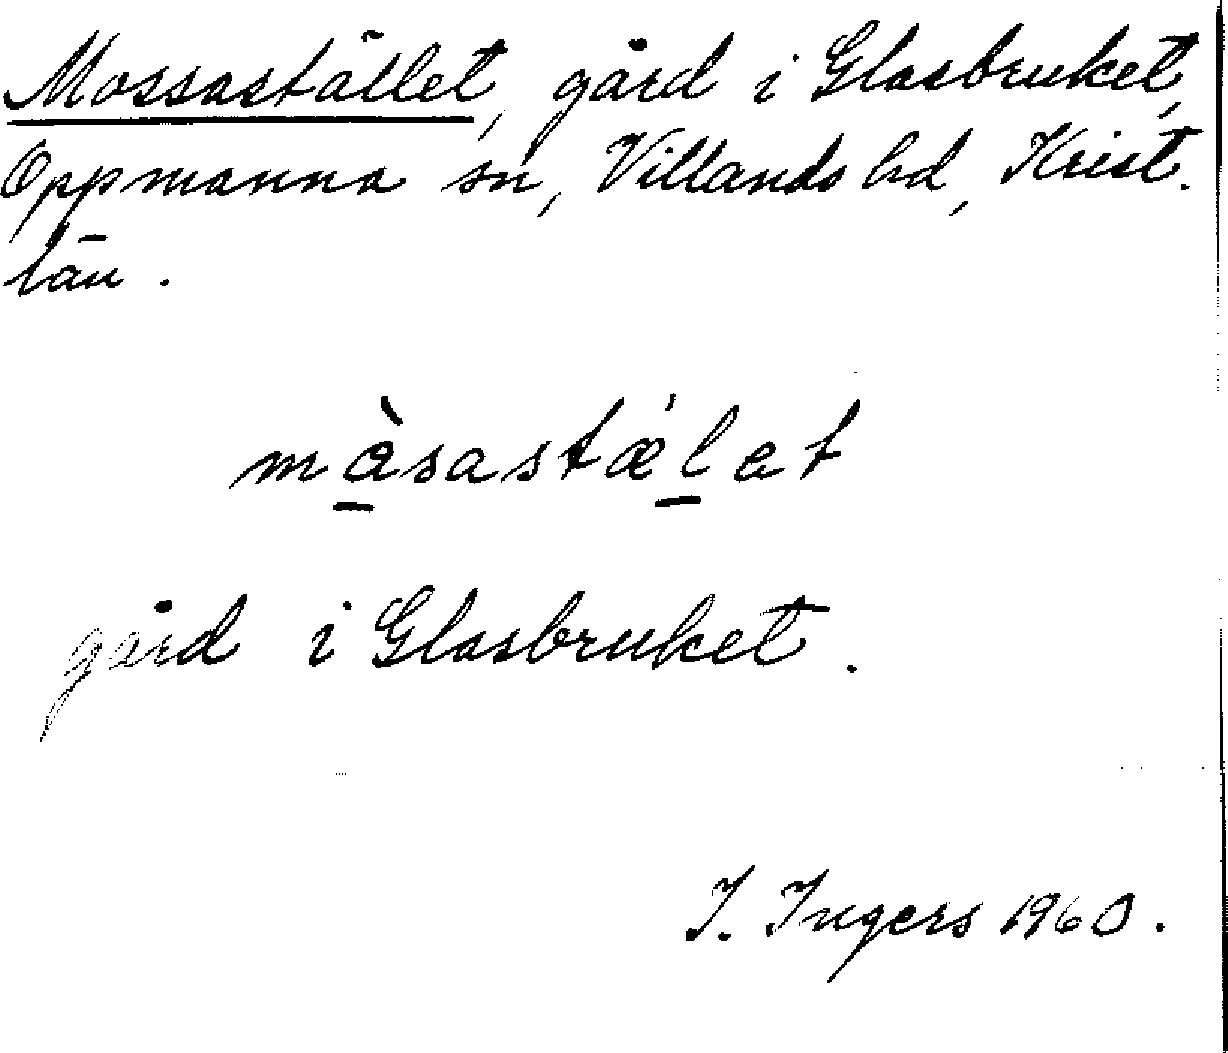 Mossastället, gård i Glasbruket,
Oppmanna sn, Villands hd, Krist.
län.
må̱̀sastǽḻet
gård i Glasbruket.
I. Ingers 1960.